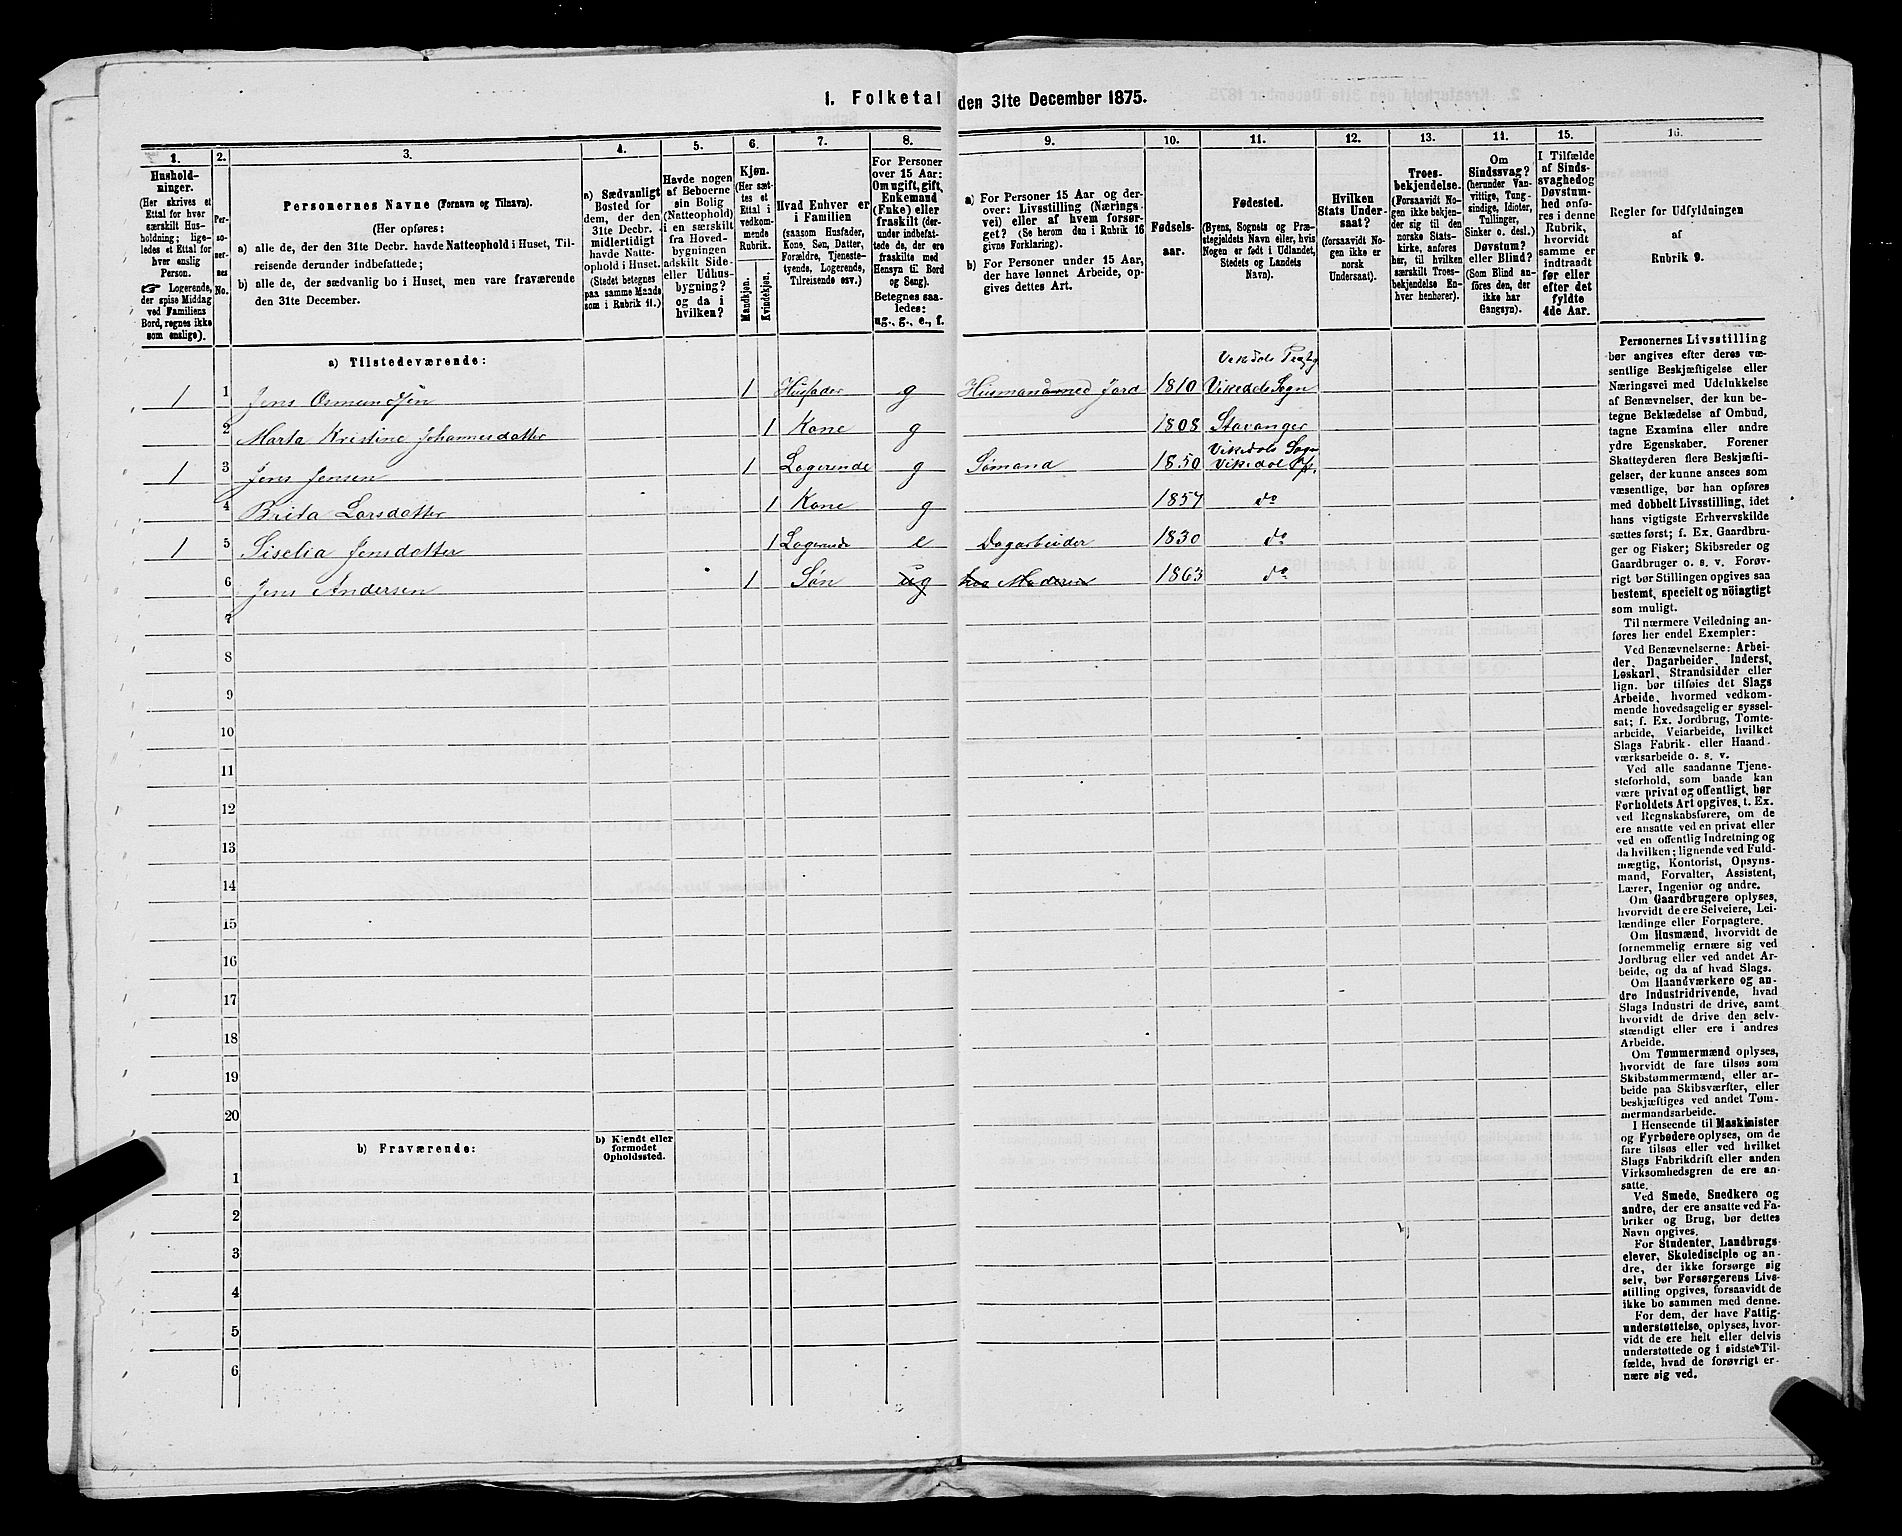 1. Folketal den 31te December 1875.
1.
Hushold-
ninger.
(Her skrives et
Ettal for hver
særskilt Hus-
holdning; lige-
ledes et Ettal for
hver enslig
Person.
☞ Logerende,
der spise Middag
ved Familiens
Bord, regnes ikke
som enslige).
2.
Per-
so-
ner-
nes
No.
3.
Personernes Navne (Fornavn og Tilnavn).
(Her opføres:
a) alle de, der den 31te Decbr. havde Natteophold i Huset, Til-
reisende derunder indbefattede;
b) alle de, der sædvanlig bo i Huset, men vare fraværende
den 31te December.
4.
a) Sædvanligt
Bosted for
dem, der den
31te Decbr.
midlertidigt
havde Natte-
ophold i Huset.
(Stedet betegnes
paa samme Maade
som i Rubrik 11.)
5.
Havde nogen
af Beboerne
sin Bolig
(Natteophold)
i en særskilt
fra Hoved-
bygningen
adskilt Side-
eller Udhus-
bygning?
og da i
hvilken?
6.
Kjøn.
(Her sæt-
tes et
Ettal i
vedkom-
mende
Rubrik.
Mandkjøn.
Kvindekjøn.
7.
Hvad Enhver er
i Familien
(saasom Husfader,
Kone, Søn, Datter,
Forældre, Tjeneste-
tyende, Logerende,
Tilreisende osv.)
8.
For Personer
over 15 Aar:
Om ugift, gift,
Enkemand
(Enke) eller
fraskilt (der-
under indbefat-
tede de, der ere
fraskilte med
Hensyn til Bord
og Seng).
Betegnes saa-
ledes:
ug., g., e., f.
9.
a) For Personer 15 Aar og der-
over: Livsstilling (Nærings-
vei) eller af hvem forsør-
get? (Se herom den i Rubrik 16
givne Forklaring).
b) For Personer under 15 Aar,
der have lønnet Arbeide, op-
gives dettes Art.
10.
Fødsels-
aar.
11.
Fødested.
(Byens, Sognets og Præ-
stegjeldets Navn eller, hvis
Nogen er født i Udlandet,
Stedets og Landets
Navn).
12.
Hvilken
Stats Under-
saat?
(forsaavidt No-
gen ikke er
norsk
Undersaat).
13.
Troes-
bekjendelse.
(Forsaavidt No-
gen ikke bekjen-
der sig til den
norske Stats-
kirke, anføres
her, til hvilken
særskilt Troes-
bekjendelse En-
hver henhører).
11.
Om
Sindssvag?
(herunder Van-
vittige, Tung-
sindige, Idioter,
Tullinger,
Sinker o. desl.)
Døvstum?
eller Blind?
(Som Blind an-
føres den, der
ikke har
Gangsyn).
15.
I Tilfælde
af Sinds-
svaghed og
Døvstum-
hed anfø-
res i denne
Rubrik,
hvorvidt
samme er
indtraadt
før eller
efter det
fyldte
4de Aar.
16.
Regler for Udfyldningen
af
Rubrik 9.
a) Tilstedeværende:
Vikedals
1 1 Jens Osmundsen 1 Husfader g Husmand med Jord 1810 Vikedals Sogn
2 Marta Kristine Johannesdatter 1 Kone g 1808 Stavanger
Vikedals Sogn
1 3 Jens Jensen 1 Logerende g Sømand 1850 Vikedal
4 Brita Larsdatter 1 Kone g 1857 do
1 5 Siselia Jensdatter 1 Logerende e Dagarbeider 1830 do
6 Jens Andersen 1 Søn ug hos Moderen 1863 do
7
8
9
10
11
12
13
14
15
16
17
18
19
20
b) Fraværende:
b) Kjendt eller
formodet
Opholdssted.
1
2
3
4
5
6
Personernes Livsstilling
bør angives efter deres væ-
sentlige Beskjæftigelse eller
Næringsvei med Udelukkelse
af Benævnelser, der kun be-
tegne Beklædelse af Ombud,
tagne Examina eller andre
ydre Egenskaber. Forener
Skatteyderen flere Beskjæfti-
gelser, der kunne ansees som
væsentlige, bør han opføres
med dobbelt Livsstilling, idet
hans vigtigste Erhvervskilde
sættes først; f. Ex. Gaardbru-
ger og Fisker; Skibsreder og
Gaardbruger o. s. v. Forøv-
rigt bør Stillingen opgives saa
bestemt, specielt og nöiagtigt
som muligt.
Til nærmere Veiledning an-
føres her endel Exempler:
Ved Benævnelserne: Arbei-
der, Dagarbeider, Inderst,
Løskarl, Strandsidder eller
lign. bør tilføies det Slags
Arbeide, hvormed vedkom-
mende hovedsagelig er syssel-
sat; f. Ex. Jordbrug, Tomte-
arbeide, Veiarbeide, hvilket
Slags Fabrik- eller Haand-
værksarbeide o. s. v.
Ved alle saadanne Tjene-
steforhold, som baade kan
være privat og offentligt, bør
Forholdets Art opgives, t. Ex.
ved Regnskabsførere, om de
ere ansatte ved en privat eller
ved en offentlig Indretning og
da hvilken; lignende ved Fuld-
mægtig, Kontorist, Opsyns-
mand, Forvalter, Assistent,
Lærer, Ingeniør og andre.
Om Gaardbrugere oplyses,
hvorvidt de ere Selveiere, Lei-
lændinge eller Forpagtere.
Om Husmænd, hvorvidt de
fornemmelig ernære sig ved
Jordbrug eller ved andet Ar-
beide, og da af hvad Slags.
Om Haandværkere og an-
dre Industridrivende, hvad
Slags Industri de drive, samt
hvorvidt de drive den selv-
stændigt eller ere i andres
Arbeide.
Om Tømmermænd oplyses,
hvorvidt de fare tilsøs som
Skibstømmermænd, eller ar-
beide paa Skibsværfter, eller
beskjæftiges ved andet Tøm-
mermandsarbeide.
I Henseende til Maskinister
og Fyrbødere oplyses, om de
fare tilsøs eller ved hvilket
Slags Fabrikdrift eller anden
Virksomhedsgren de ere an-
satte.
Ved Smede, Snedkere og
andre, der ere ansatte ved Fa-
briker og Brug, bør dettes
Navn opgives.
For Studenter, Landbrugs-
elever, Skoledisciple og an-
dre, der ikke forsørge sig
selv, bør Forsørgerens Livs-
stilling opgives, forsaavidt de
ikke bo sammen med denne.
For dem, der have Fattig-
understøttelse, oplyses, hvor-
vidt de ere helt eller delvis
understøttede og i sidste Til-
fælde, hvad de forøvrigt er-
nære sig ved.